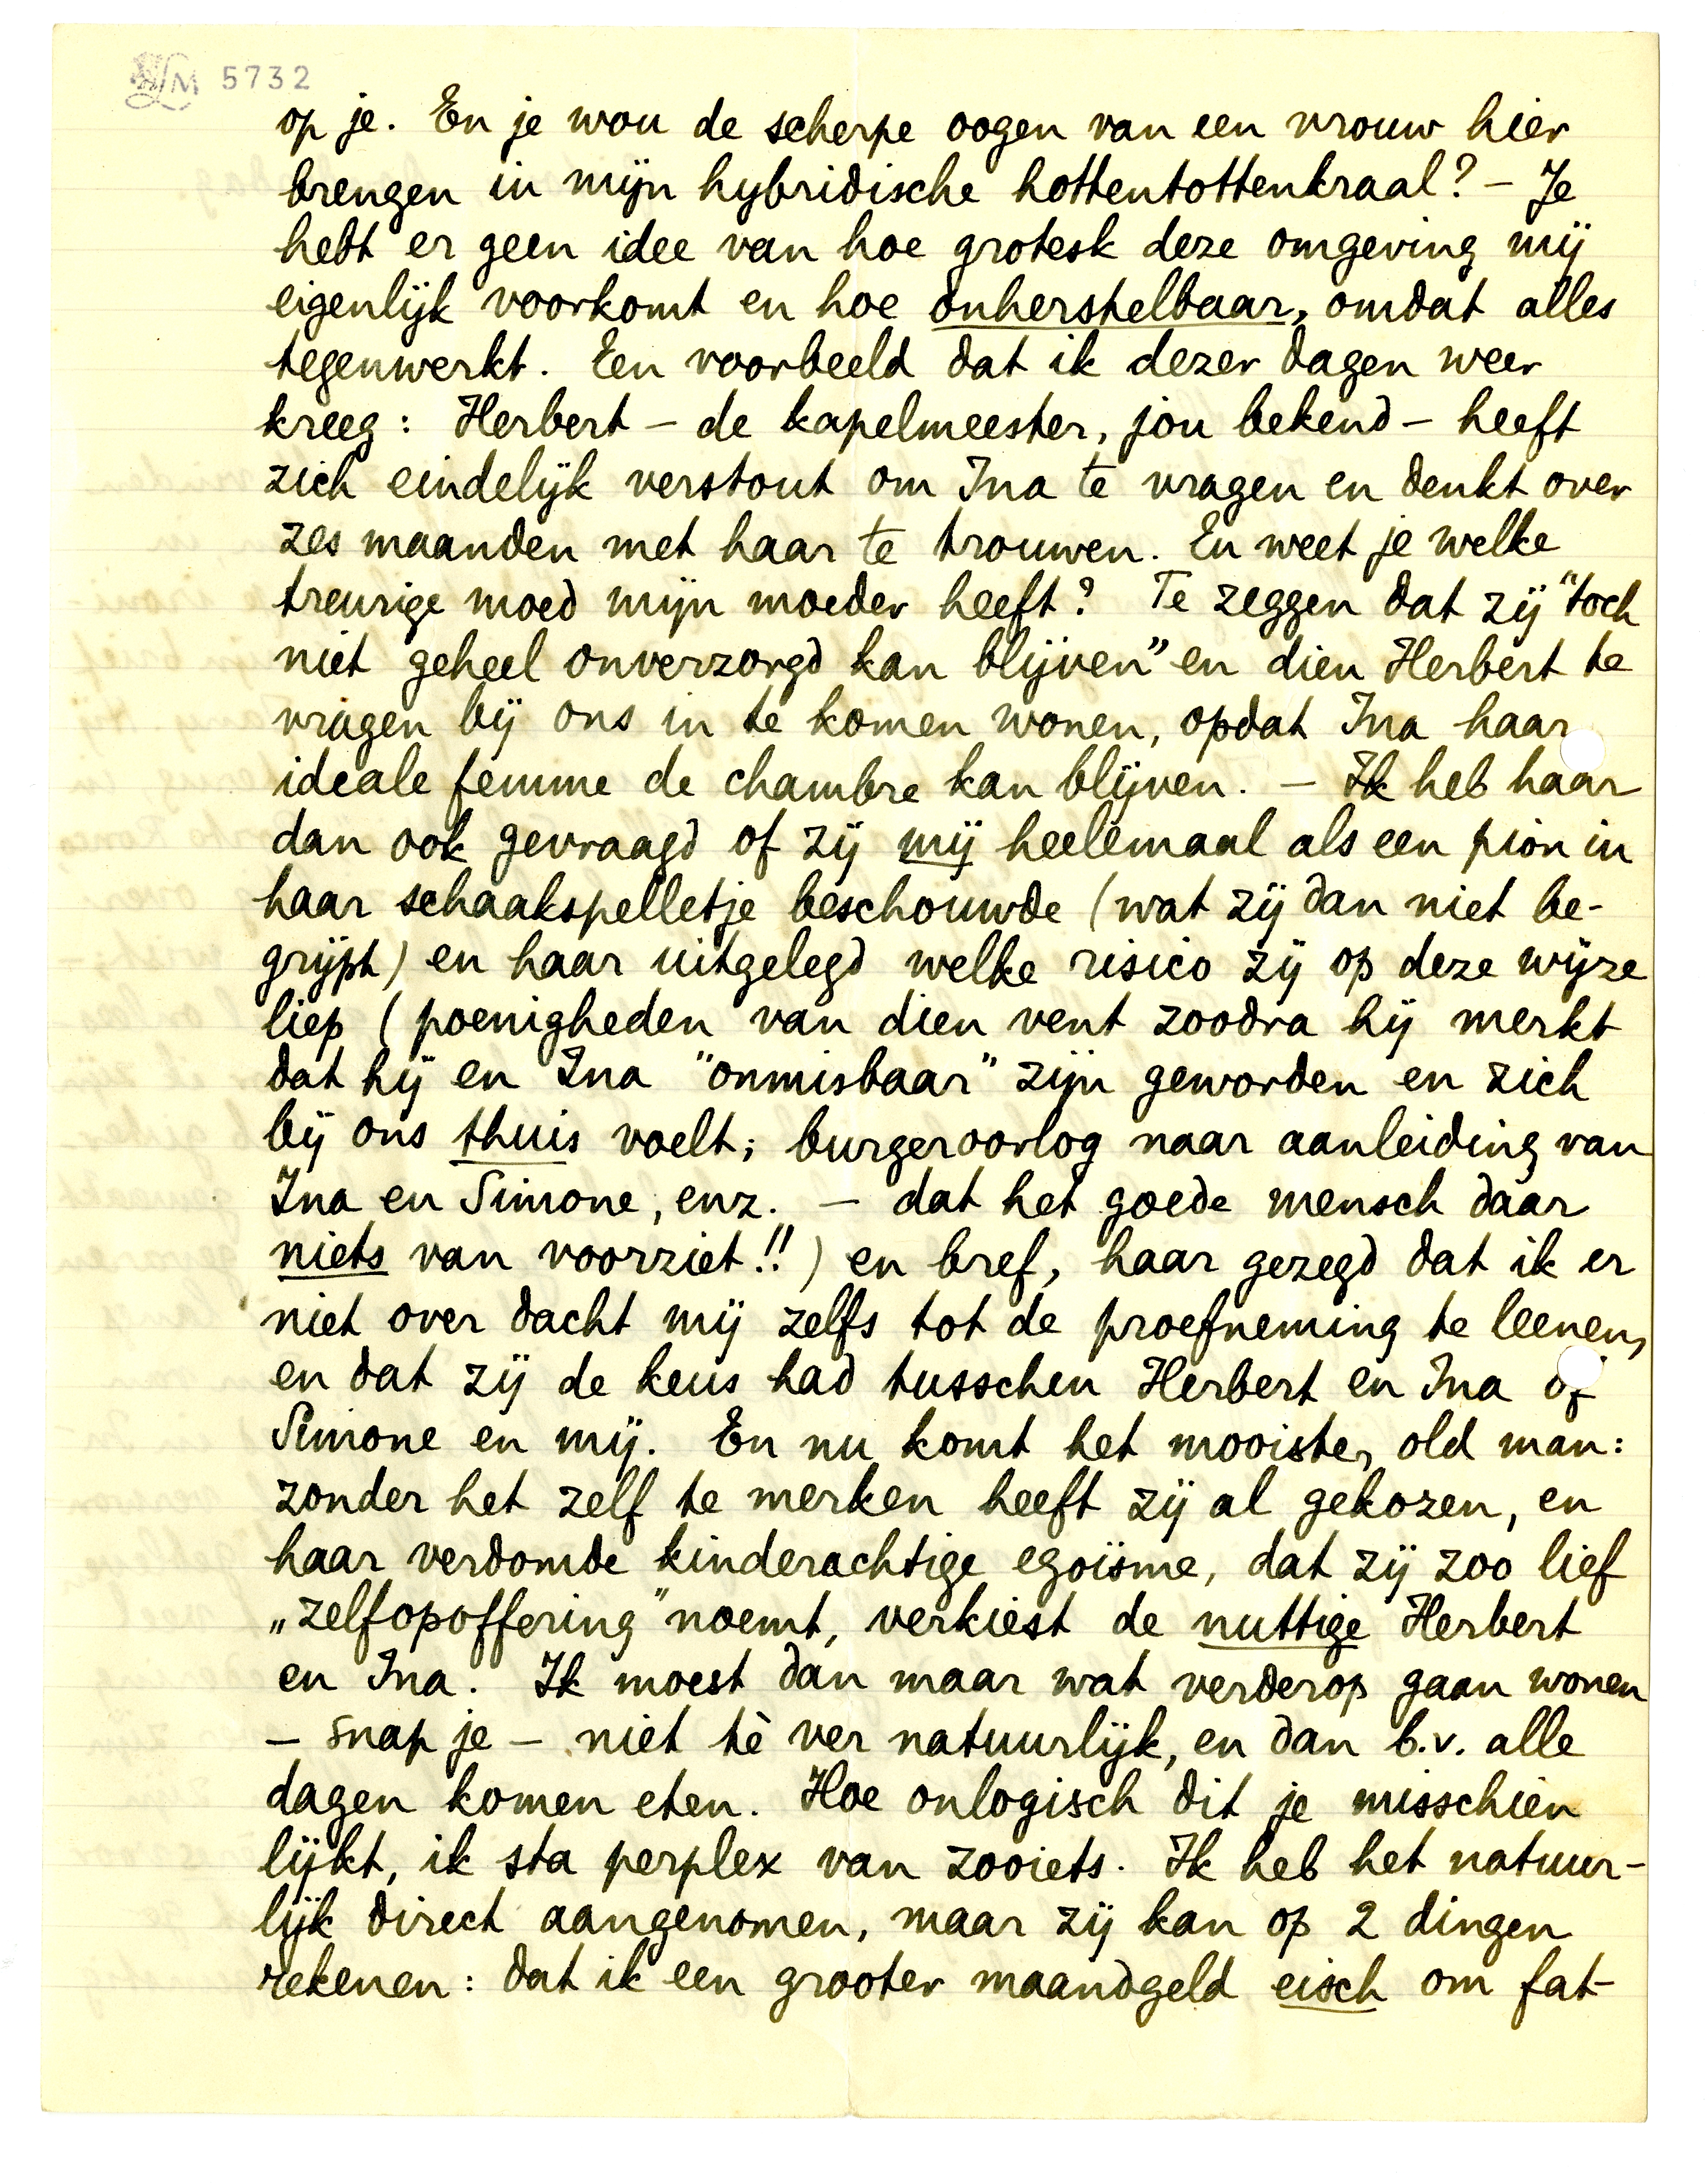 LM 5732
op je. En je wou de scherpe oogen van een vrouw hier
brengen in mijn hybridische hottentottenkraal? – Je
hebt er geen idee van hoe grotesk deze omgeving mij
eigenlijk voorkomt en hoe onherstelbaar, omdat alles
tegenwerkt. Een voorbeeld dat ik dezer dagen weer
kreeg: Herbert – de kapelmeester, jou bekend – heeft
zich eindelijk verstout om Ina te vragen en denkt over
zes maanden met haar te trouwen. En weet je welke
treurige moed mijn moeder heeft? Te zeggen dat zij "toch
niet geheel onverzorgd kan blijven" en dien Herbert te
vragen bij ons in te komen wonen, opdat Ina haar
ideale femme de chambre kan blijven. – Ik heb haar
dan ook gevraagd of zij mij heelemaal als een pion in
haar schaakspelletje beschouwde (wat zij dan niet be-
grijpt) en haar uitgelegd welke risico zij op deze wijze
liep (poenigheden van dien vent zoodra hij merkt
dat hij en Ina "onmisbaar" zijn geworden en zich
bij ons thuis voelt; burgeroorlog naar aanleiding van
Ina en Simone, enz. – dat het goede mensch daar
niets van voorziet!!) en bref, haar gezegd dat ik er
niet over dacht mij zelfs tot de proefneming te leenen,
en dat zij de keus had tusschen Herbert en Ina of
Simone en mij. En nu komt het mooiste, old man:
zonder het zelf te merken heeft zij al gekozen, en
haar verdomde kinderachtige egoïsme, dat zij zoo lief
„zelfopoffering" noemt, verkiest de nuttige Herbert
en Ina. Ik moest dan maar wat verderop gaan wonen
– snap je – niet tè ver natuurlijk, en dan b.v. alle
dagen komen eten. Hoe onlogisch dit je misschien
lijkt, ik sta perplex van zooiets. Ik heb het natuur-
lijk direct aangenomen, maar zij kan op 2 dingen
rekenen: dat ik een grooter maandgeld eisch om fat-